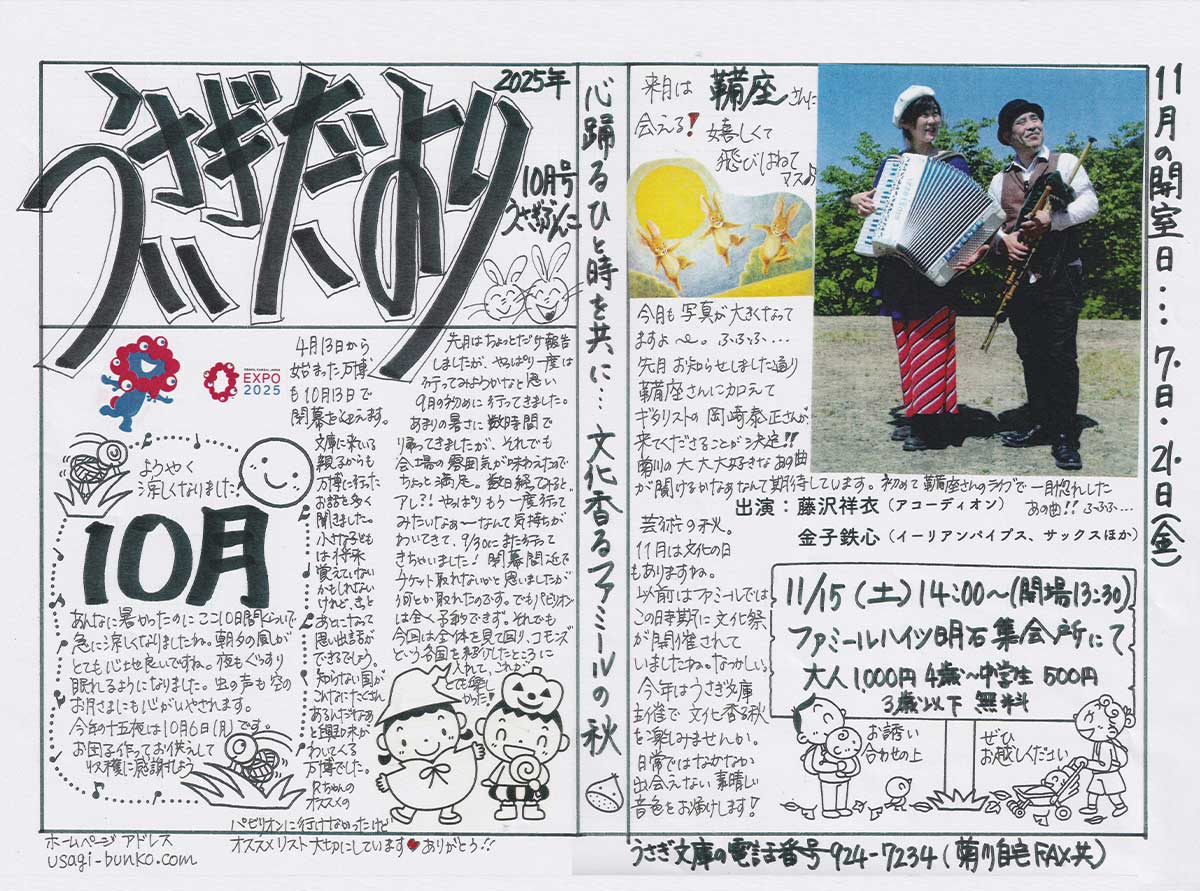 うさぎだより
2025年
10月号
うさぎぶんこ
4月13日から
始まった万博
も10月13日で
閉幕をむかえます。
OSAKA, KANSAI, JAPAN
EXPO
2025
文庫に来ている
親子からも
万博に行った
お話を多く
聞きました。
小さな子ども
は将来
覚えていない
かもしれない
けれど、きっと
あとになって
思い出話が
できるでしょう。
知らない国が
こんなにたくさん
あるんだなあ
と興味が
わいてくる
万博でした。
Rちゃんの
オススメの
パビリオンに行けなかったけど
オススメリスト大切にしています♥ありがとう!!
先月はちょっとだけ報告
しましたが、やっぱり一度は
行ってみようかなと思い
9月の初めに行ってきました。
あまりの暑さに数時間で
帰ってきましたが、それでも
会場の雰囲気が味わえたので
ちょっと満足。数日経ってみると
アレ?!やっぱりもう一度行って
みたいなぁ〜なんて気持ちが
わいてきて、9/30にまた行って
きちゃいました!閉幕間近で
チケット取れないかと思いましたが
何とか取れたのです。でもパビリオン
は全く予約できず。それでも
今回は全体を見て回り、コモンズ
という各国を紹介したところに
入れて、これが
とても楽し
かった!
ようやく
涼しくなりました!
10月
あんなに暑かったのにここ10日間くらいで
急に涼しくなりましたね。朝夕の風が
とても心地良いですね。夜もぐっすり
眠れるようになりました。虫の声も空の
お月さまにも心がいやされます。
今年の十五夜は10月6日(月)です。
お団子作ってお供えして
収穫に感謝しよう
ホームページアドレス
usagi-bunko.com
心踊るひと時を共に…文化香るファミールの秋
来月は鞴座さんに
会える!嬉しくて
飛びはねて
マス♪
今月も写真が大きくなって
ますよ〜。ふふふ…
先月お知らせしました通り
鞴座さんに加えて
ギタリストの岡崎泰正さんが
来てくださることが決定!!
菊川の大大大好きなあの曲
が聞けるかなぁなんて期待しています。初めて鞴座さんのライブで一目惚れした
あの曲!!ふふふ…
出演:藤沢祥衣(アコーディオン)
金子鉄心(イーリアンパイプス、サックスほか)
芸術の秋。
11月は文化の日
もありますね。
以前はファミールでは
この時期に文化祭
が開催されて
いましたね。なつかしい。
今年はうさぎ文庫
主催で文化香る秋
を楽しみませんか。
日常ではなかなか
出会えない素晴しい
音色をお届けします!
11/15(土)14:00〜(開場13:30)
ファミールハイツ明石集会所にて
大人1,000円 4歳〜中学生500円
3歳以下 無料
お誘い
合わせの上
ぜひ
お越しください
11月の開室日…7日・21日(金)
うさぎ文庫の電話番号924-7234(菊川自宅FAX共)